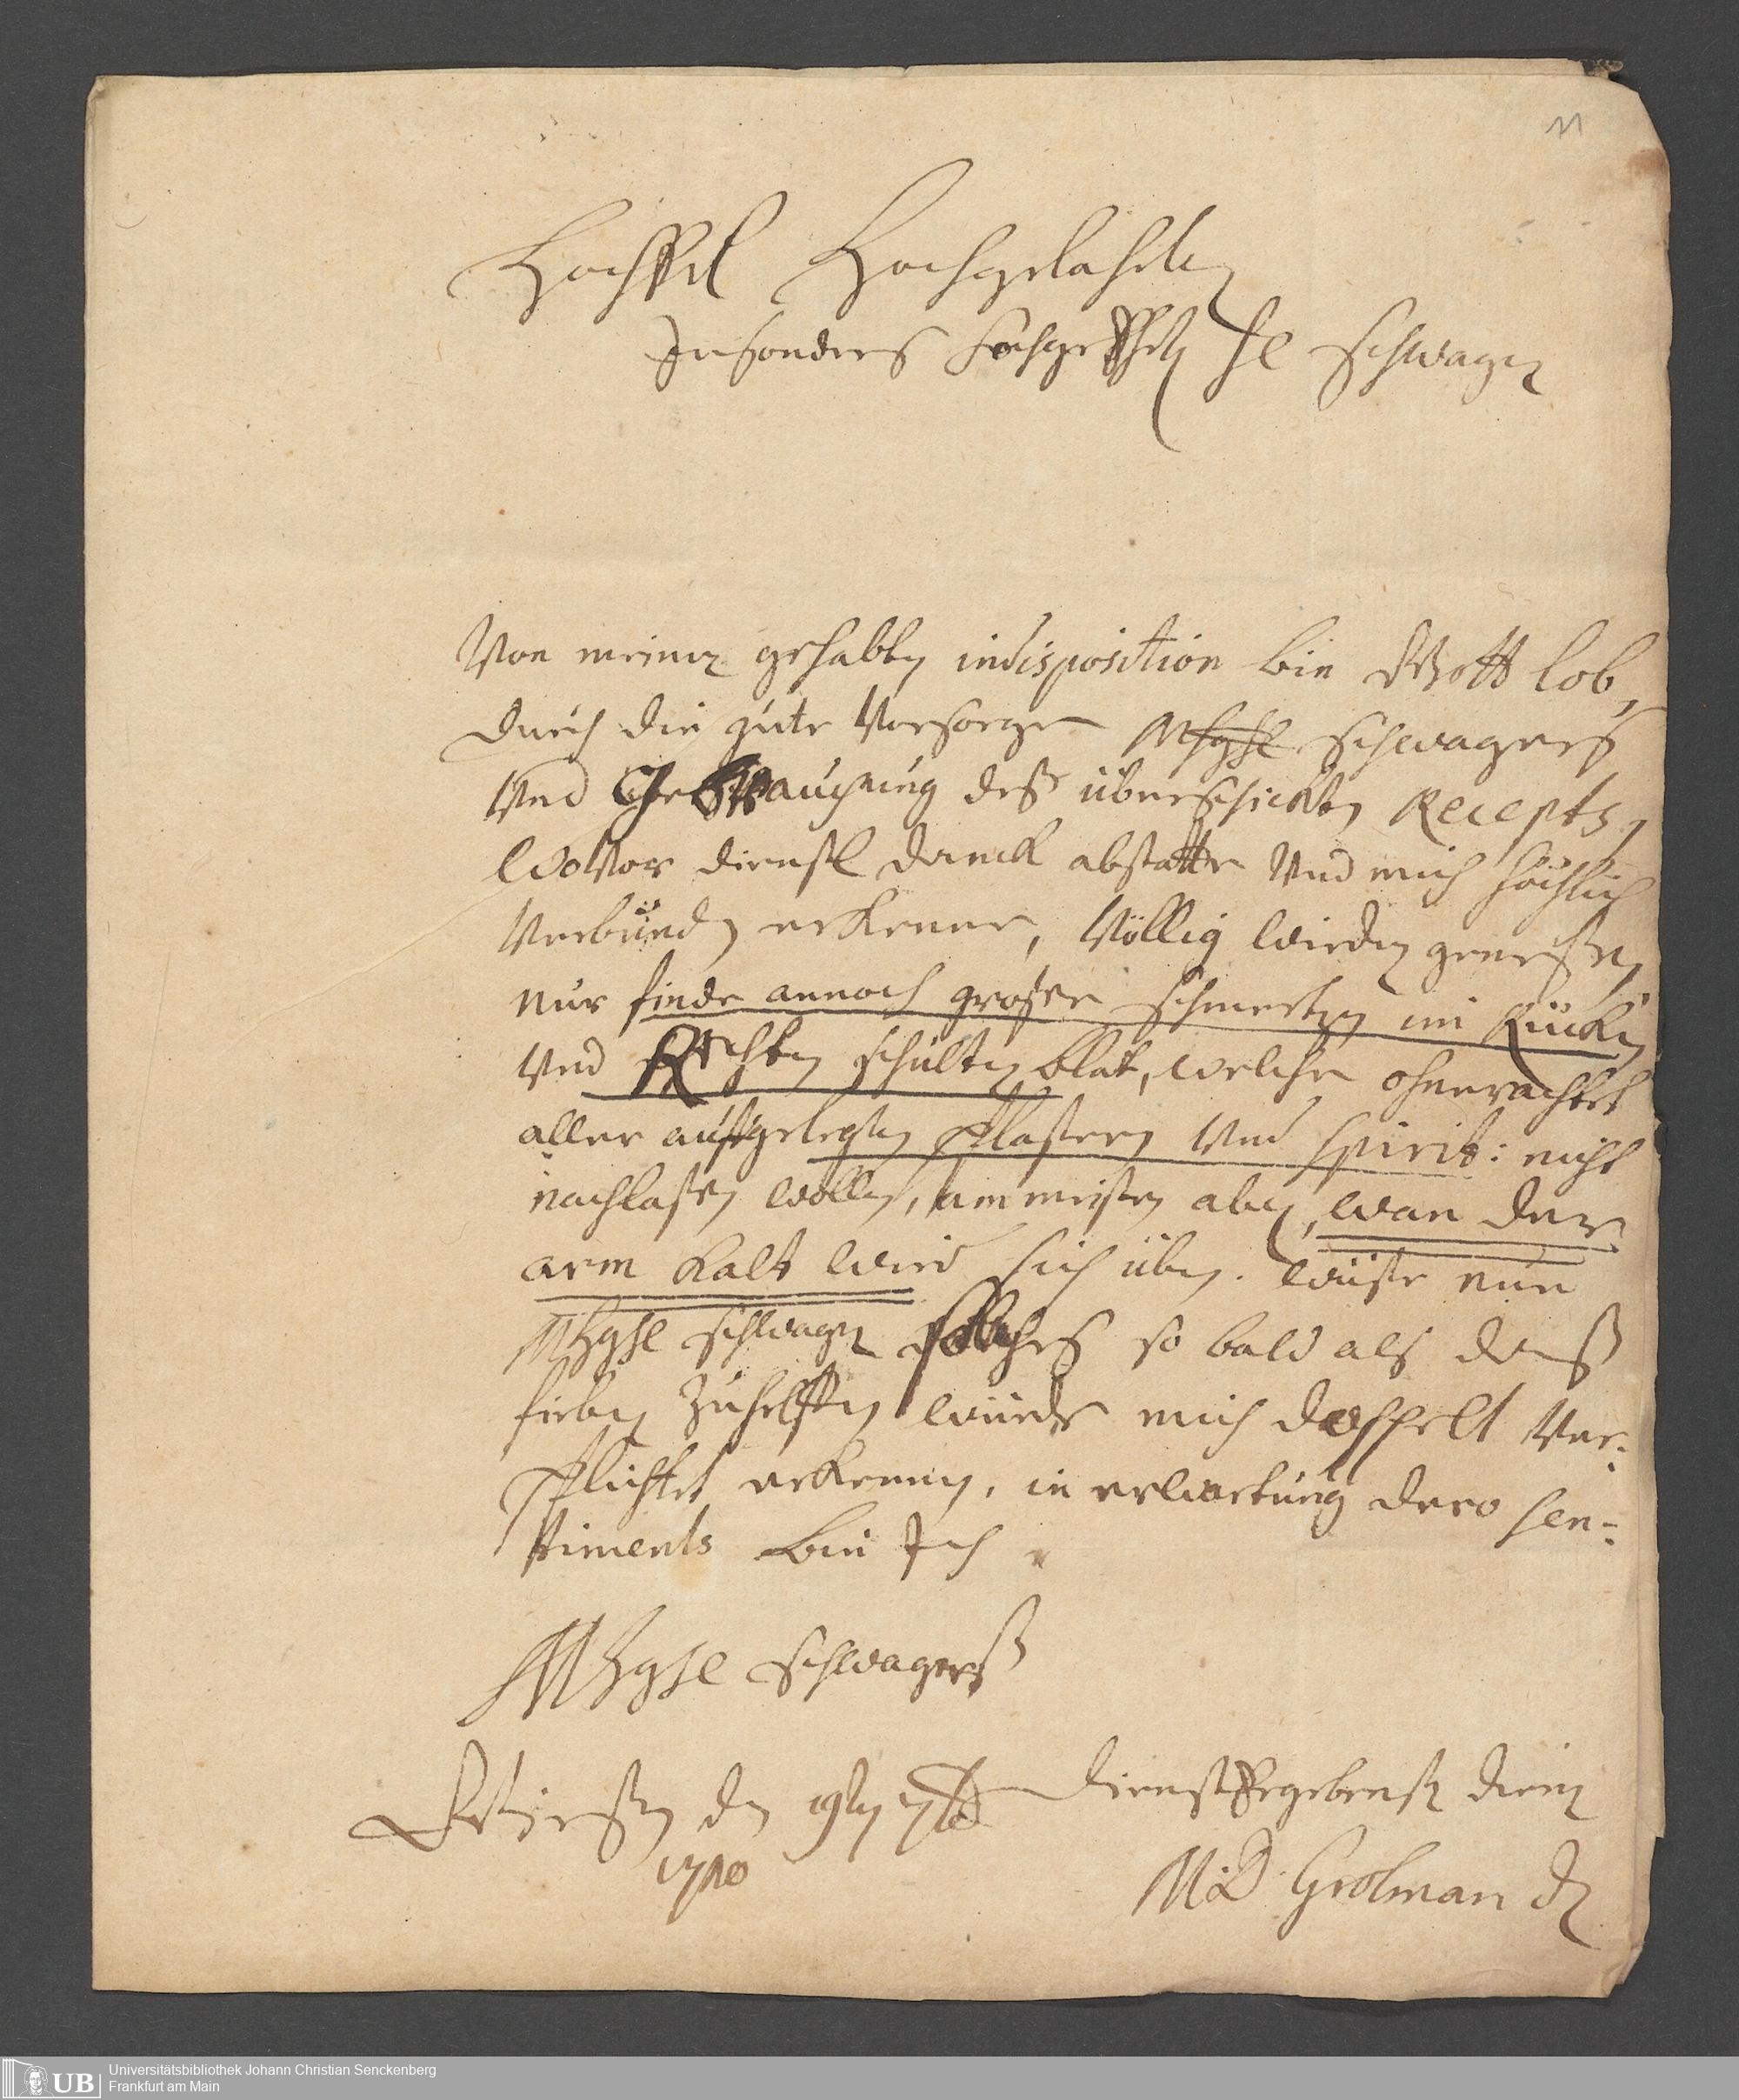 11
HochEdel Hochgelahrter
Insonders Hochgeehrter He Schwager
Von meiner gehabten indisposition bin Gott lob,
durch die gute Vorsorge MhghE Schwagers
Und Gebrauchung deß überschickten Recepts,
wovor dienstl danck abstatte Und mich höchlich
Verbunden erkenne, Völlig wieder genesen,
nur finde annoch große schmertzen im Rücken
Und Rechten schulterblat, welche ohnerachtet
aller aufgelegten Plastern Und spirit: nicht
nachlaßen wollen, am meisten aber, wan der
arm kalt wird sich üben. wüste nun
MhghE schwager solches so bald als daß
fieber zuhelffen würde mich doppelt Ver-
pflichtet erkennen, in erwartung dero sen-
timents bin Ich
MhghE schwagerß
Gießen den 19ten 7b
1710
Dienstergebenster diener
MD Grolman D
Universitätsbibliothek Johann Christian Senckenberg
Frankfurt am Main
UB